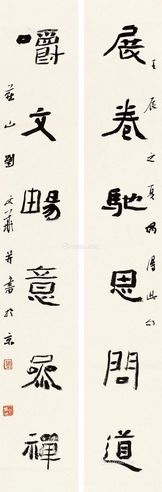 壬辰之夏偶得此句
展卷馳思問道
嚼文暢意參禪
燕山劉文華并書於京